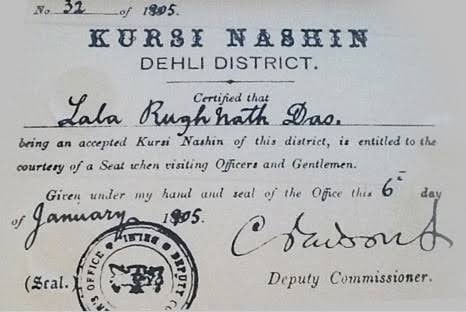 No. 32 of 1905.
KURSI NASHIN
DEHLI DISTRICT.
Certified that
Lala Rugh Nath Das.
being an accepted Kursi Nashin of this district, is entitled to the
courtesy of a Seat when visiting Officers and Gentlemen.
Given under my hand and seal of the Office this 6th day
of January 1905.
(Seal.)
OFFICE DEPUTY
Deputy Commissioner.